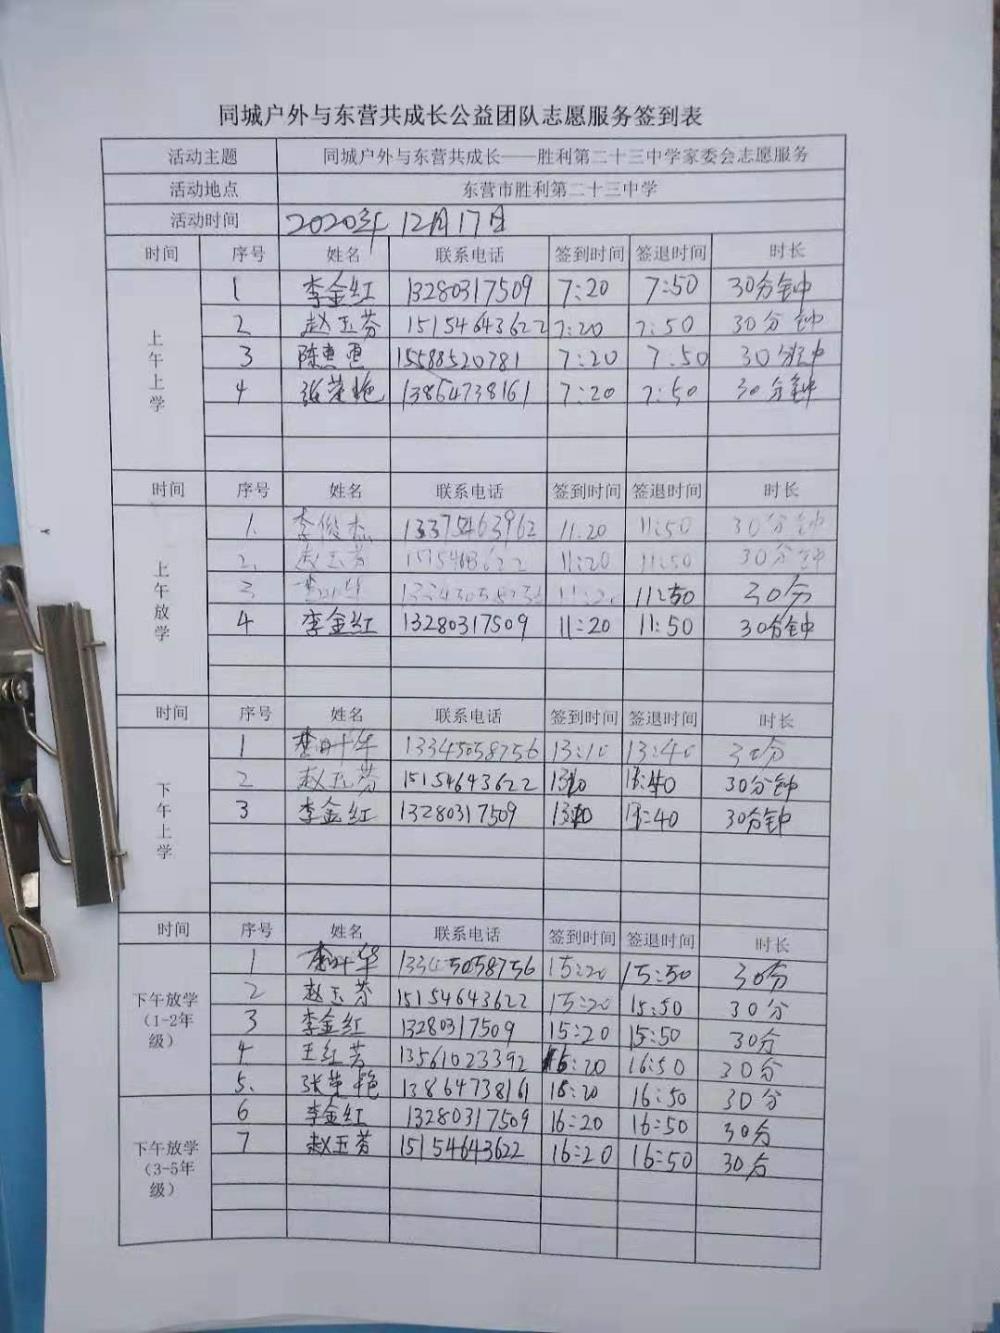 同城户外与东营共成长公益团队志愿服务签到表
活动主题 同城户外与东营共成长——胜利第二十三中学家委会志愿服务
活动地点 东营市胜利第二十三中学
活动时间 2020年12月17日
时间 序号 姓名 联系电话 签到时间 签退时间 时长
上午上学
1 李金红 13280317509 7:20 7:50 30分钟
2 赵玉芬 15154643622 7:20 7:50 30分钟
3 陈惠 15588520781 7:20 7.50 30分钟
4 张荣艳 13864738161 7:20 7:50 30分钟
时间 序号 姓名 联系电话 签到时间 签退时间 时长
上午放学
1. 李俊杰 13375463962 11.20 11:50 30分钟
2. 赵玉芬 15154643622 11:20 11:50 30分钟
3 11:20 11:50 30分
4 李金红 13280317509 11:20 11:50 30分钟
时间 序号 姓名 联系电话 签到时间 签退时间 时长
下午上学
1 李叶华 13345058756 13:10 13:40 30分
2 赵玉芬 15154643622 1310 13:40 30分钟
3 李金红 13280317509 1310 13:40 30分钟
时间 序号 姓名 联系电话 签到时间 签退时间 时长
下午放学
(1-2年
级)
1 李叶华 13345058756 15:20 15:50 30分
2 赵玉芬 15154643622 15:20 15:50 30分
3 李金红 13280317509 15:20 15:50 30分
4 王红芳 13561023392 16:20 16:50 30分
5. 张荣艳 13864738161 16:20 16:50 30分
下午放学
(3-5年
级)
6 李金红 13280317509 16:20 16:50 30分
7 赵玉芬 15154643622 16:20 16:50 30分